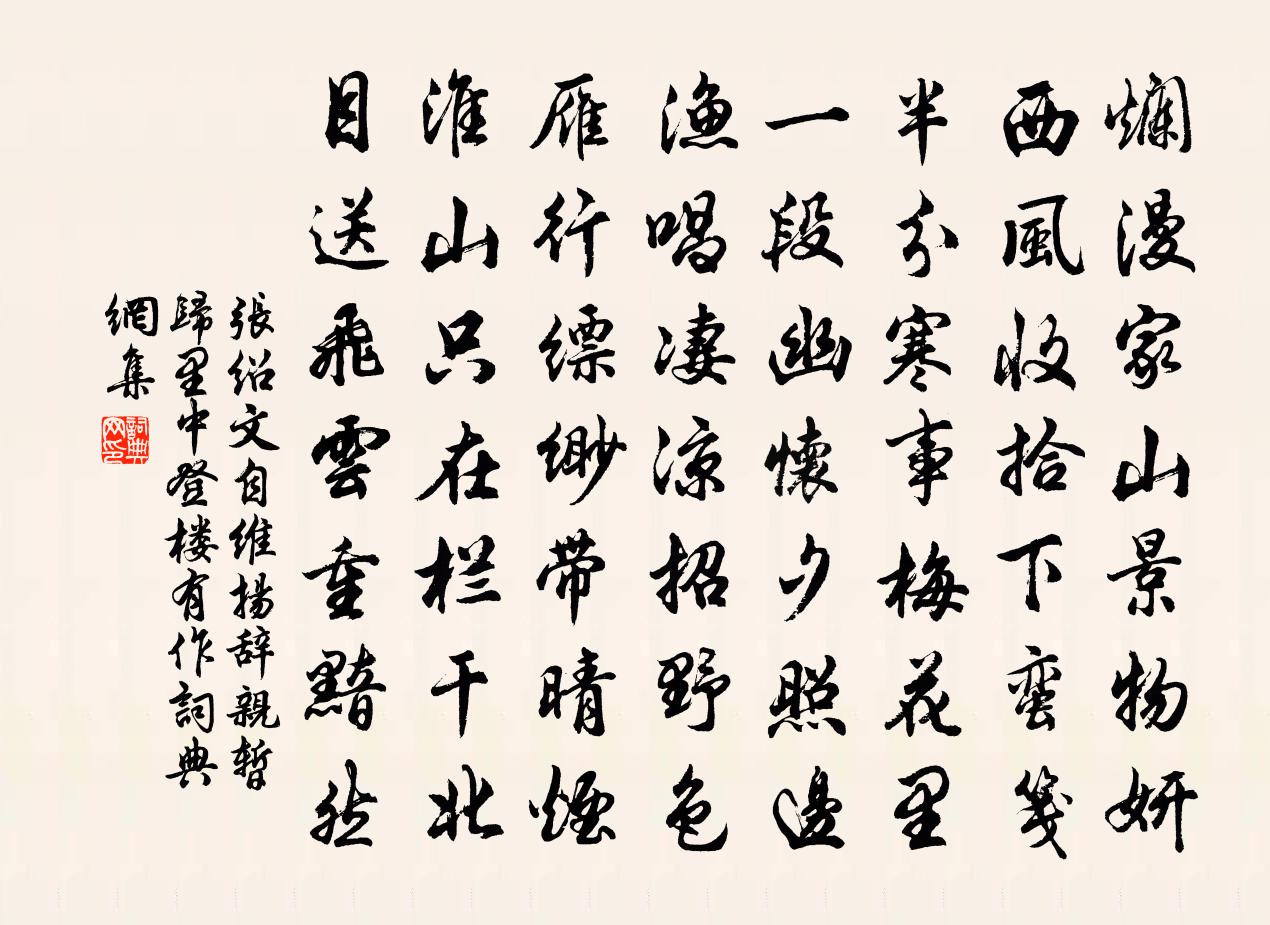 爛漫家山景物妍
西風收拾下蛮箋
半分寒事梅花里
一段幽懷夕照邊
漁唱凄凉招野色
雁行縹緲帶晴煙
淮山只在栏干北
目送飛雲重黯然
張紹文自維揚辞親暫
歸里中登楼有作詞典
網集
詞典网印